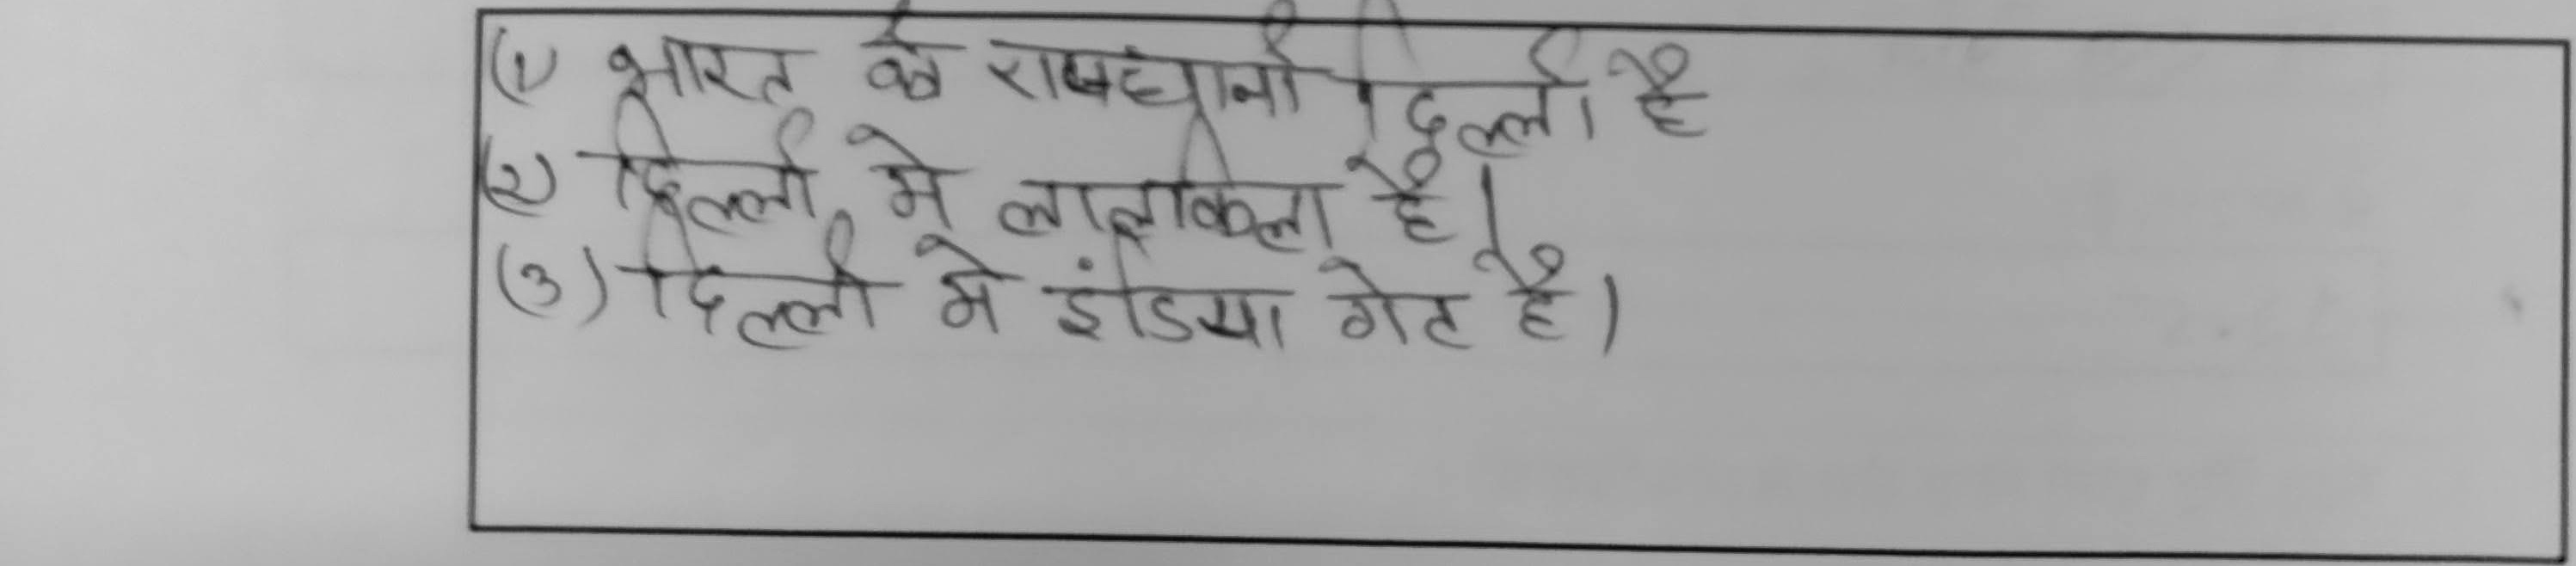 (1) भारत के राजधानी दिल्ली है
(२) दिल्ली में लालकिला है।
(3) दिल्ली में इंडिया गेट है।